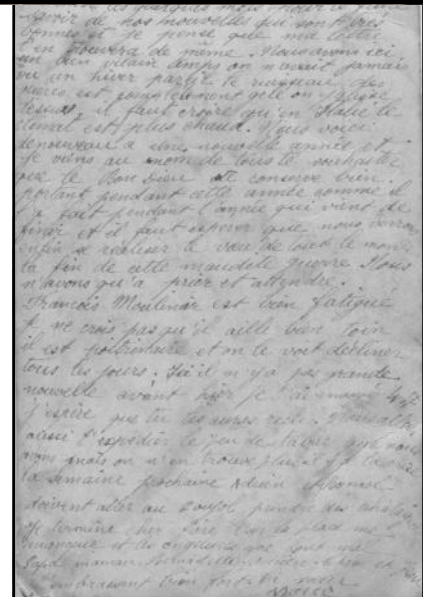 de nos nouvelles qui sont très
bonnes et je pense que ma lettre
t'en trouvera de même. Nous avons ici
un bien vilain temps on n'avait jamais
vu un hiver pareil le ruisseau des
est complètement gelé on
dessus, il faut croire qu'en Italie le
climat est plus chaud. Nous voici
denouveau a une nouvelle année et
je viens au nom de tous te souhaiter
que le Bon Dieu te conserve bien
portant pendant cette année comme il
l'a fait pendant l'année qui vient de
finir et il faut espérer que nous verrons
enfin se réaliser le vœu de tout le monde
la fin de cette maudite guerre Nous
n'avons qu'a prier et attendre.
François Moulenar est bien fatigué
je ne crois pas qu'il aille bien loin
il est poitrinaire et on le voit décliner
tous les jours. Ici il n'y a pas grande
nouvelle avant hier je t'ai envoyé
j'espère que tu les auras reçu.
aussi t'expédier le peu de que nous
mais on n'en trouve plus il y a
la semaine prochaine Adrien et
doivent aller au prendre des
Je termine cher Père la place me
et les que
Papa maman
embrassent bien fort